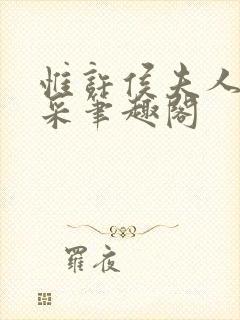 惟許侯夫人
采筆趣閣
羅夜